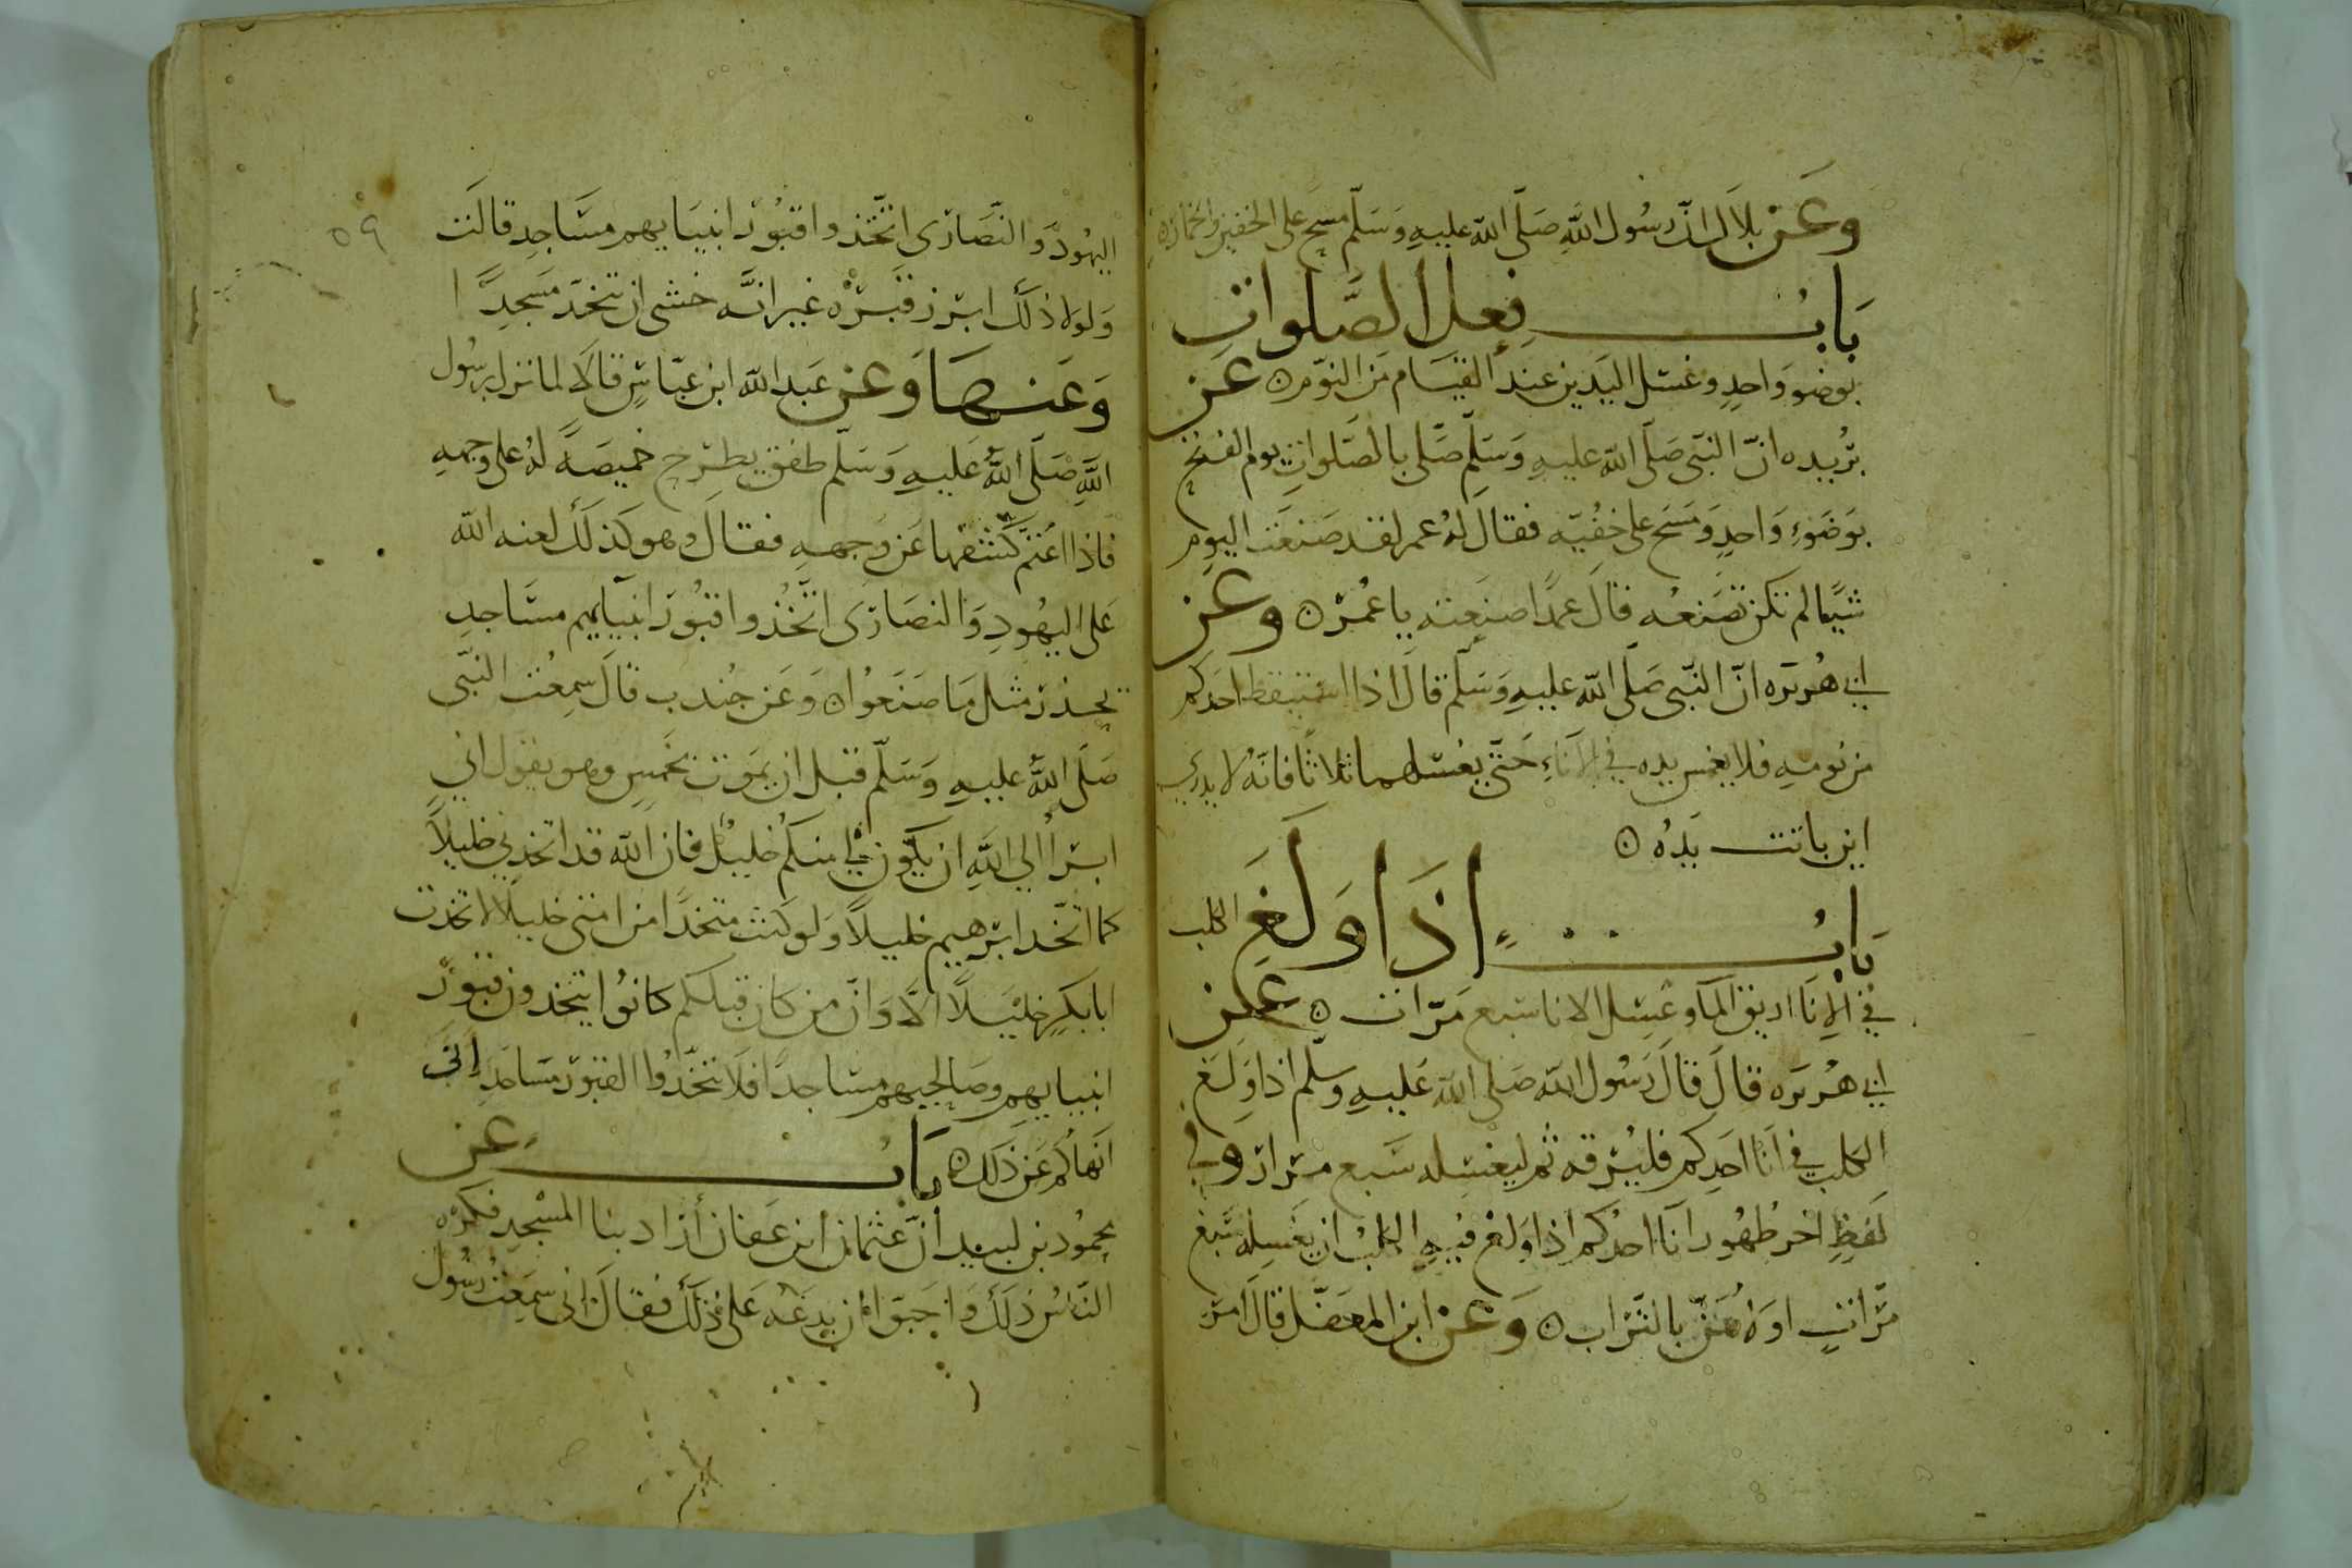 وعن بلال ان رسول الله صلى الله عليه وسلم مسح على الخفين والخمار ه
باب فعل الصلوات
بوضو واحد وغسل اليدين عند القيام من النوم ه عن
بريده ان النبي صلى الله عليه وسلم صلى بالصلوات يوم الفتح
بوضوء واحد ومسح على خفيه فقال له عمر لقد صنعت اليوم
شيئا لم تكن تصنعه قال عمدا صنعته يا عمر ه وعن
ابي هريره ان النبي صلى الله عليه وسلم قال اذا استيقظ احدكم
من نومه فلا يغمس يده في الاناء حتى يغسلهما ثلاثا فانه لا يدري
اين باتت يده ه
باب اذا ولغ الكلب
في الانا اريق الما وغسل الانا سبع مرات ه عن
ابي هريره قال قال رسول الله صلى الله عليه وسلم اذا ولغ
الكلب في انا احدكم فليرقه ثم ليغسله سبع مرار وفي
لفظ اخر طهور انا احدكم اذا ولغ فيه الكلب ان يغسله سبع
مرات اولاهن بالتراب ه وعن ابن المغفل قال امر
٥٩
اليهود والنصارى اتخذوا قبور انبيايهم مساجد قالت
ولولا ذلك ابرز قبره غير انه خشى ان يتخذ مسجدا
وعنها وعن عبد الله ابن عباس قالا لما نزل برسول
الله صلى الله عليه وسلم طفق يطرح خميصة له على وجهه
فاذا اغتم كشفها عن وجهه فقال وهو كذلك لعنه الله
على اليهود والنصارى اتخذوا قبور انبيايهم مساجد
يحذر مثل ما صنعوا ه وعن جندب قال سمعت النبي
صلى الله عليه وسلم قبل ان يموت بخمس وهو يقول اني
ابرا الى الله ان يكون لي منكم خليل فان الله قد اتخذني خليلا
كما اتخذ ابرهيم خليلا ولو كنت متخذا من امتي خليلا لاتخذت
ابا بكر خليلا الا وان من كان قبلكم كانوا يتخذون قبور
انبيايهم وصالحيهم مساجدا فلا تتخذوا القبور مساجد اني
انهاكم عن ذلك ه باب عن
محمود بن لبيد ان عثمان ابن عفان اراد بنا المسجد فكره
الناس ذلك واحبوا ان يدعه على ذلك فقال اني سمعت رسول